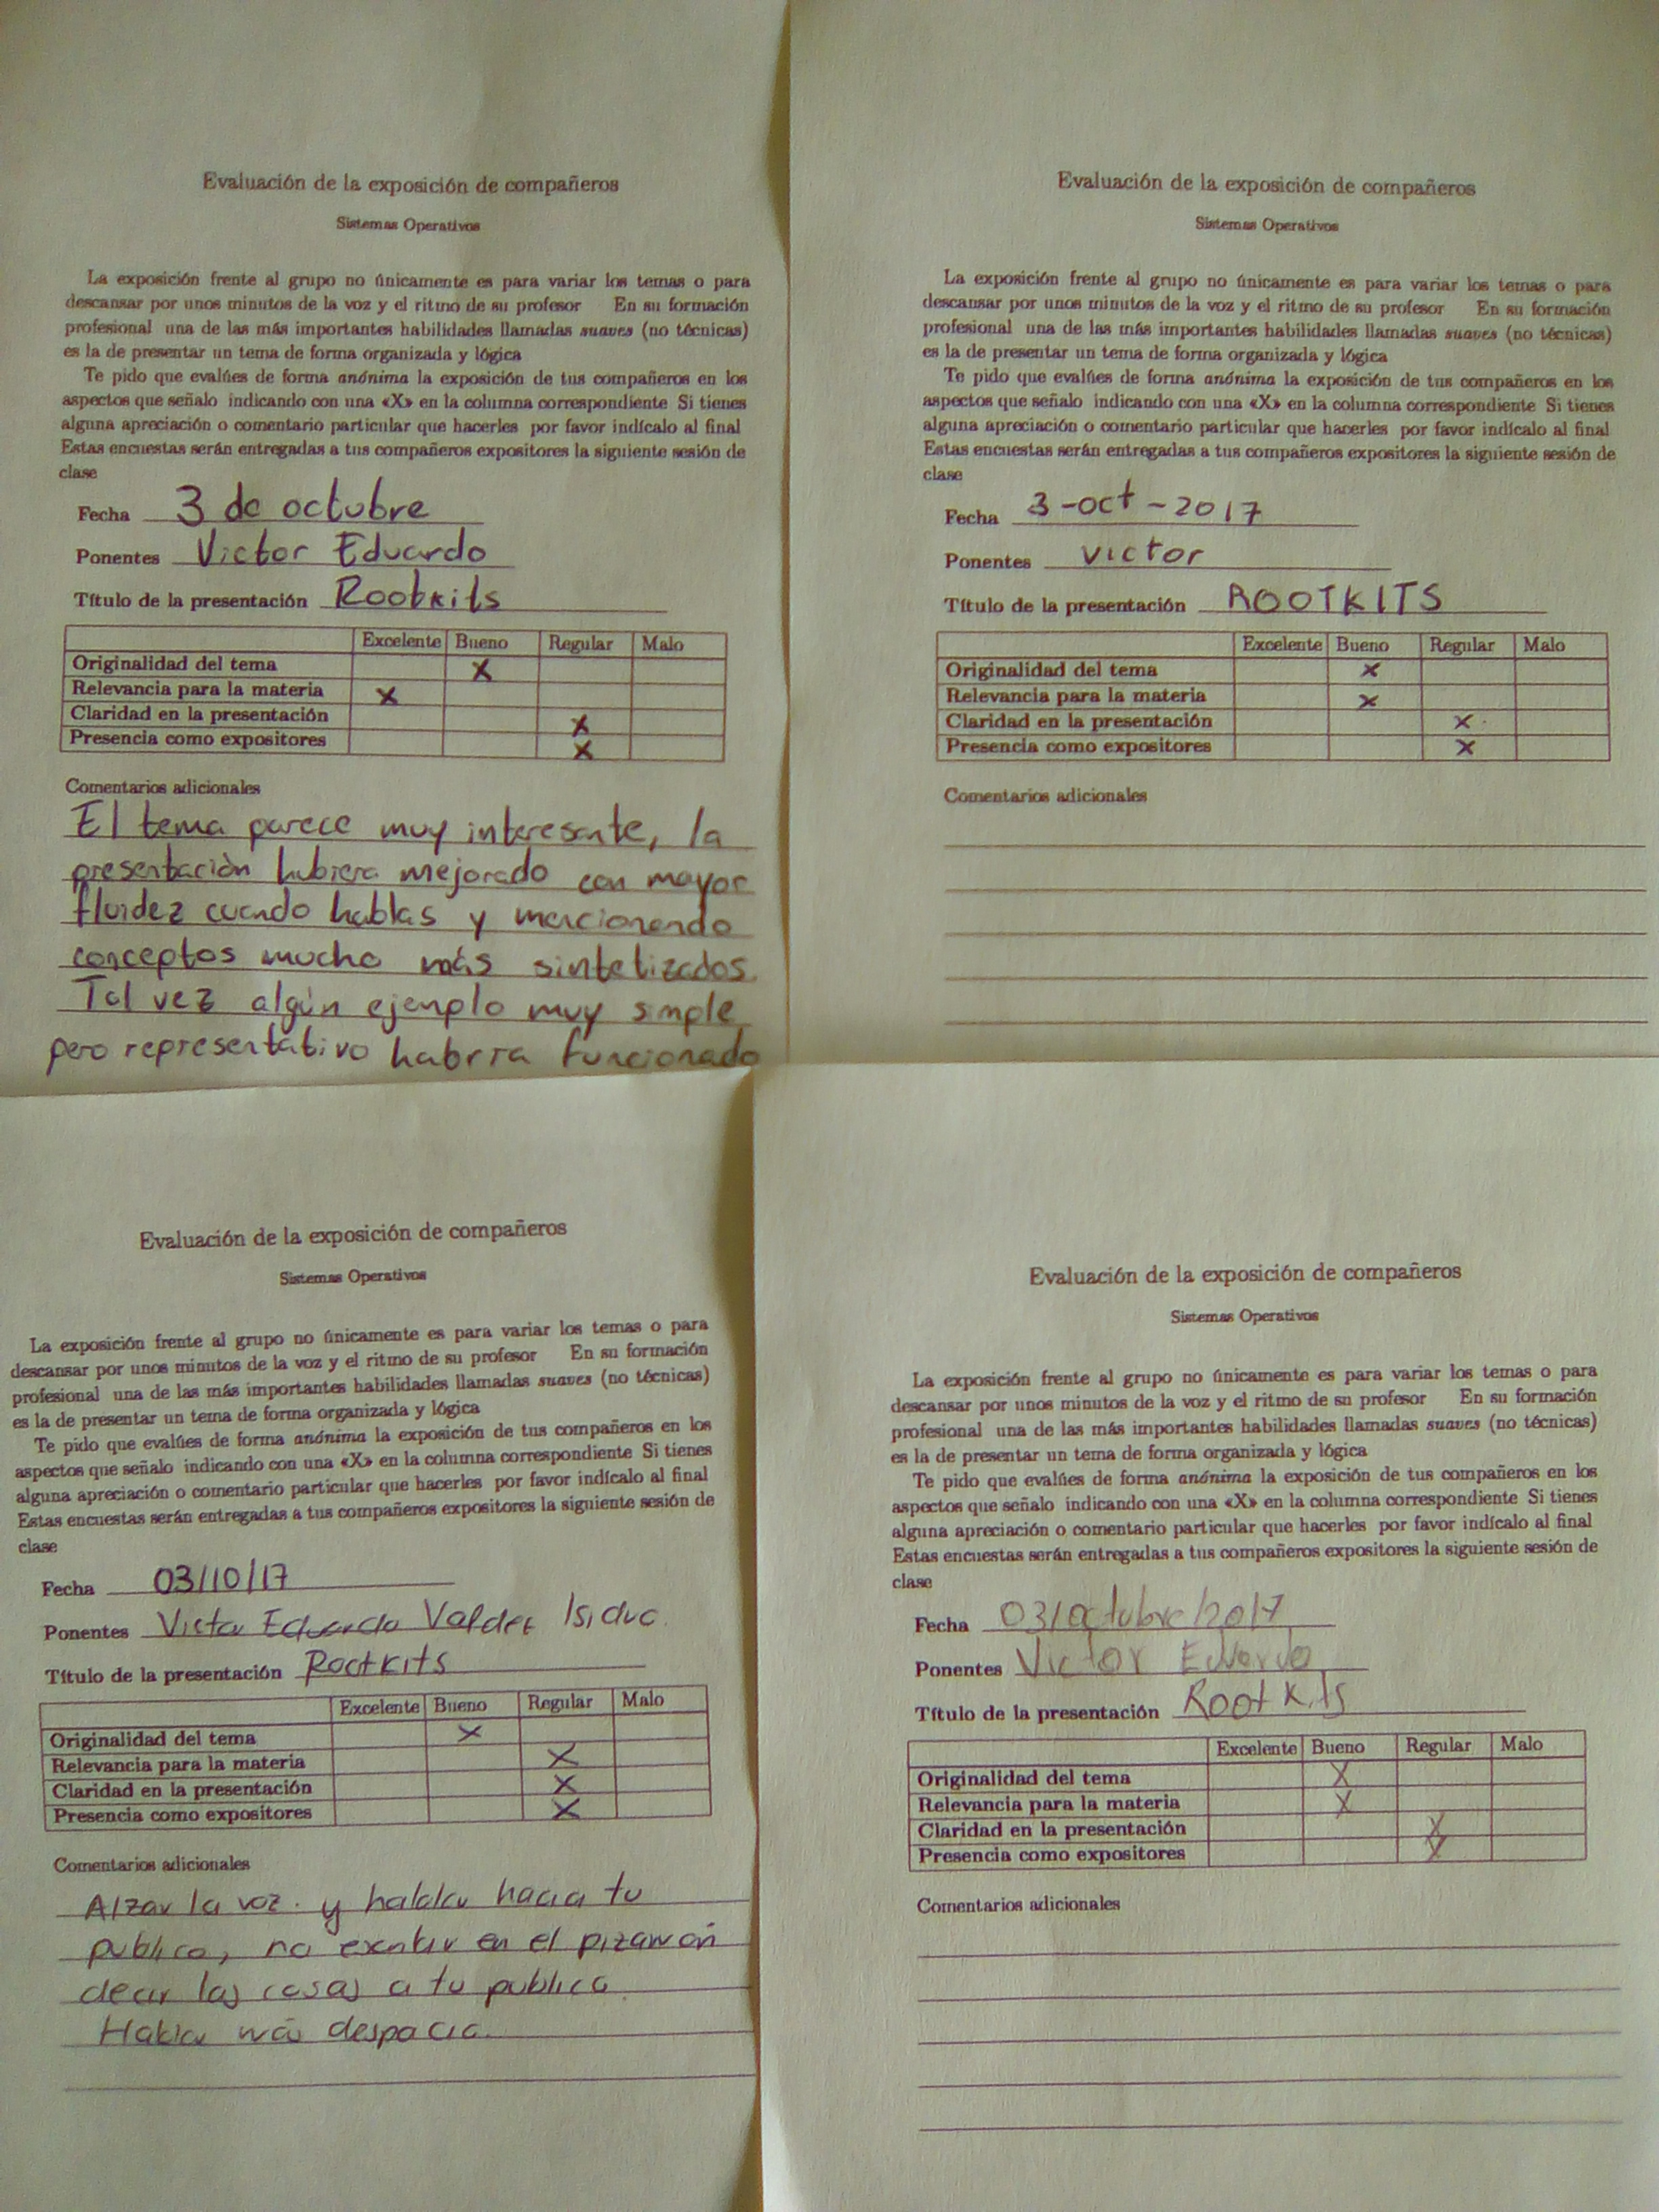 Evaluación de la exposición de compañeros
Sistemas Operativos
La exposición frente al grupo no únicamente es para variar los temas o para
descansar por unos minutos de la voz y el ritmo de su profesor En su formación
profesional una de las más importantes habilidades llamadas suaves (no técnicas)
es la de presentar un tema de forma organizada y lógica
Te pido que evalúes de forma anónima la exposición de tus compañeros en los
aspectos que señalo indicando con una «X» en la columna correspondiente Si tienes
alguna apreciación o comentario particular que hacerles por favor indícalo al final
Estas encuestas serán entregadas a tus compañeros expositores la siguiente sesión de
clase
Fecha 3 de octubre
Ponentes Victor Eduardo
Título de la presentación Rootkits
Excelente Bueno Regular Malo
Originalidad del tema X
Relevancia para la materia X
Claridad en la presentación X
Presencia como expositores X
Comentarios adicionales
El tema parece muy interesante, la
presentación hubiera mejorado con mayor
fluidez cuando hablas y mencionando
conceptos mucho más sintetizados.
Tal vez algún ejemplo muy simple
pero representativo habria funcionado
Evaluación de la exposición de compañeros
Sistemas Operativos
La exposición frente al grupo no únicamente es para variar los temas o para
descansar por unos minutos de la voz y el ritmo de su profesor En su formación
profesional una de las más importantes habilidades llamadas suaves (no técnicas)
es la de presentar un tema de forma organizada y lógica
Te pido que evalúes de forma anónima la exposición de tus compañeros en los
aspectos que señalo indicando con una «X» en la columna correspondiente Si tienes
alguna apreciación o comentario particular que hacerles por favor indícalo al final
Estas encuestas serán entregadas a tus compañeros expositores la siguiente sesión de
clase
Fecha 3-oct-2017
Ponentes victor
Título de la presentación ROOTKITS
Excelente Bueno Regular Malo
Originalidad del tema X
Relevancia para la materia X
Claridad en la presentación X
Presencia como expositores X
Comentarios adicionales
Evaluación de la exposición de compañeros
Sistemas Operativos
La exposición frente al grupo no únicamente es para variar los temas o para
descansar por unos minutos de la voz y el ritmo de su profesor En su formación
profesional una de las más importantes habilidades llamadas suaves (no técnicas)
es la de presentar un tema de forma organizada y lógica
Te pido que evalúes de forma anónima la exposición de tus compañeros en los
aspectos que señalo indicando con una «X» en la columna correspondiente Si tienes
alguna apreciación o comentario particular que hacerles por favor indícalo al final
Estas encuestas serán entregadas a tus compañeros expositores la siguiente sesión de
clase
Fecha 03/10/17
Ponentes Victor Eduardo Valdez
Título de la presentación Rootkits
Excelente Bueno Regular Malo
Originalidad del tema X
Relevancia para la materia X
Claridad en la presentación X
Presencia como expositores X
Comentarios adicionales
Alzar la voz. y hablar hacia tu
publico, no escribir en el pizarrón
decir las cosas a tu publico.
Hablar más despacio.
Evaluación de la exposición de compañeros
Sistemas Operativos
La exposición frente al grupo no únicamente es para variar los temas o para
descansar por unos minutos de la voz y el ritmo de su profesor En su formación
profesional una de las más importantes habilidades llamadas suaves (no técnicas)
es la de presentar un tema de forma organizada y lógica
Te pido que evalúes de forma anónima la exposición de tus compañeros en los
aspectos que señalo indicando con una «X» en la columna correspondiente Si tienes
alguna apreciación o comentario particular que hacerles por favor indícalo al final
Estas encuestas serán entregadas a tus compañeros expositores la siguiente sesión de
clase
Fecha 03/Octubre/2017
Ponentes Victor Eduardo
Título de la presentación Rootkits
Excelente Bueno Regular Malo
Originalidad del tema X
Relevancia para la materia X
Claridad en la presentación X
Presencia como expositores X
Comentarios adicionales